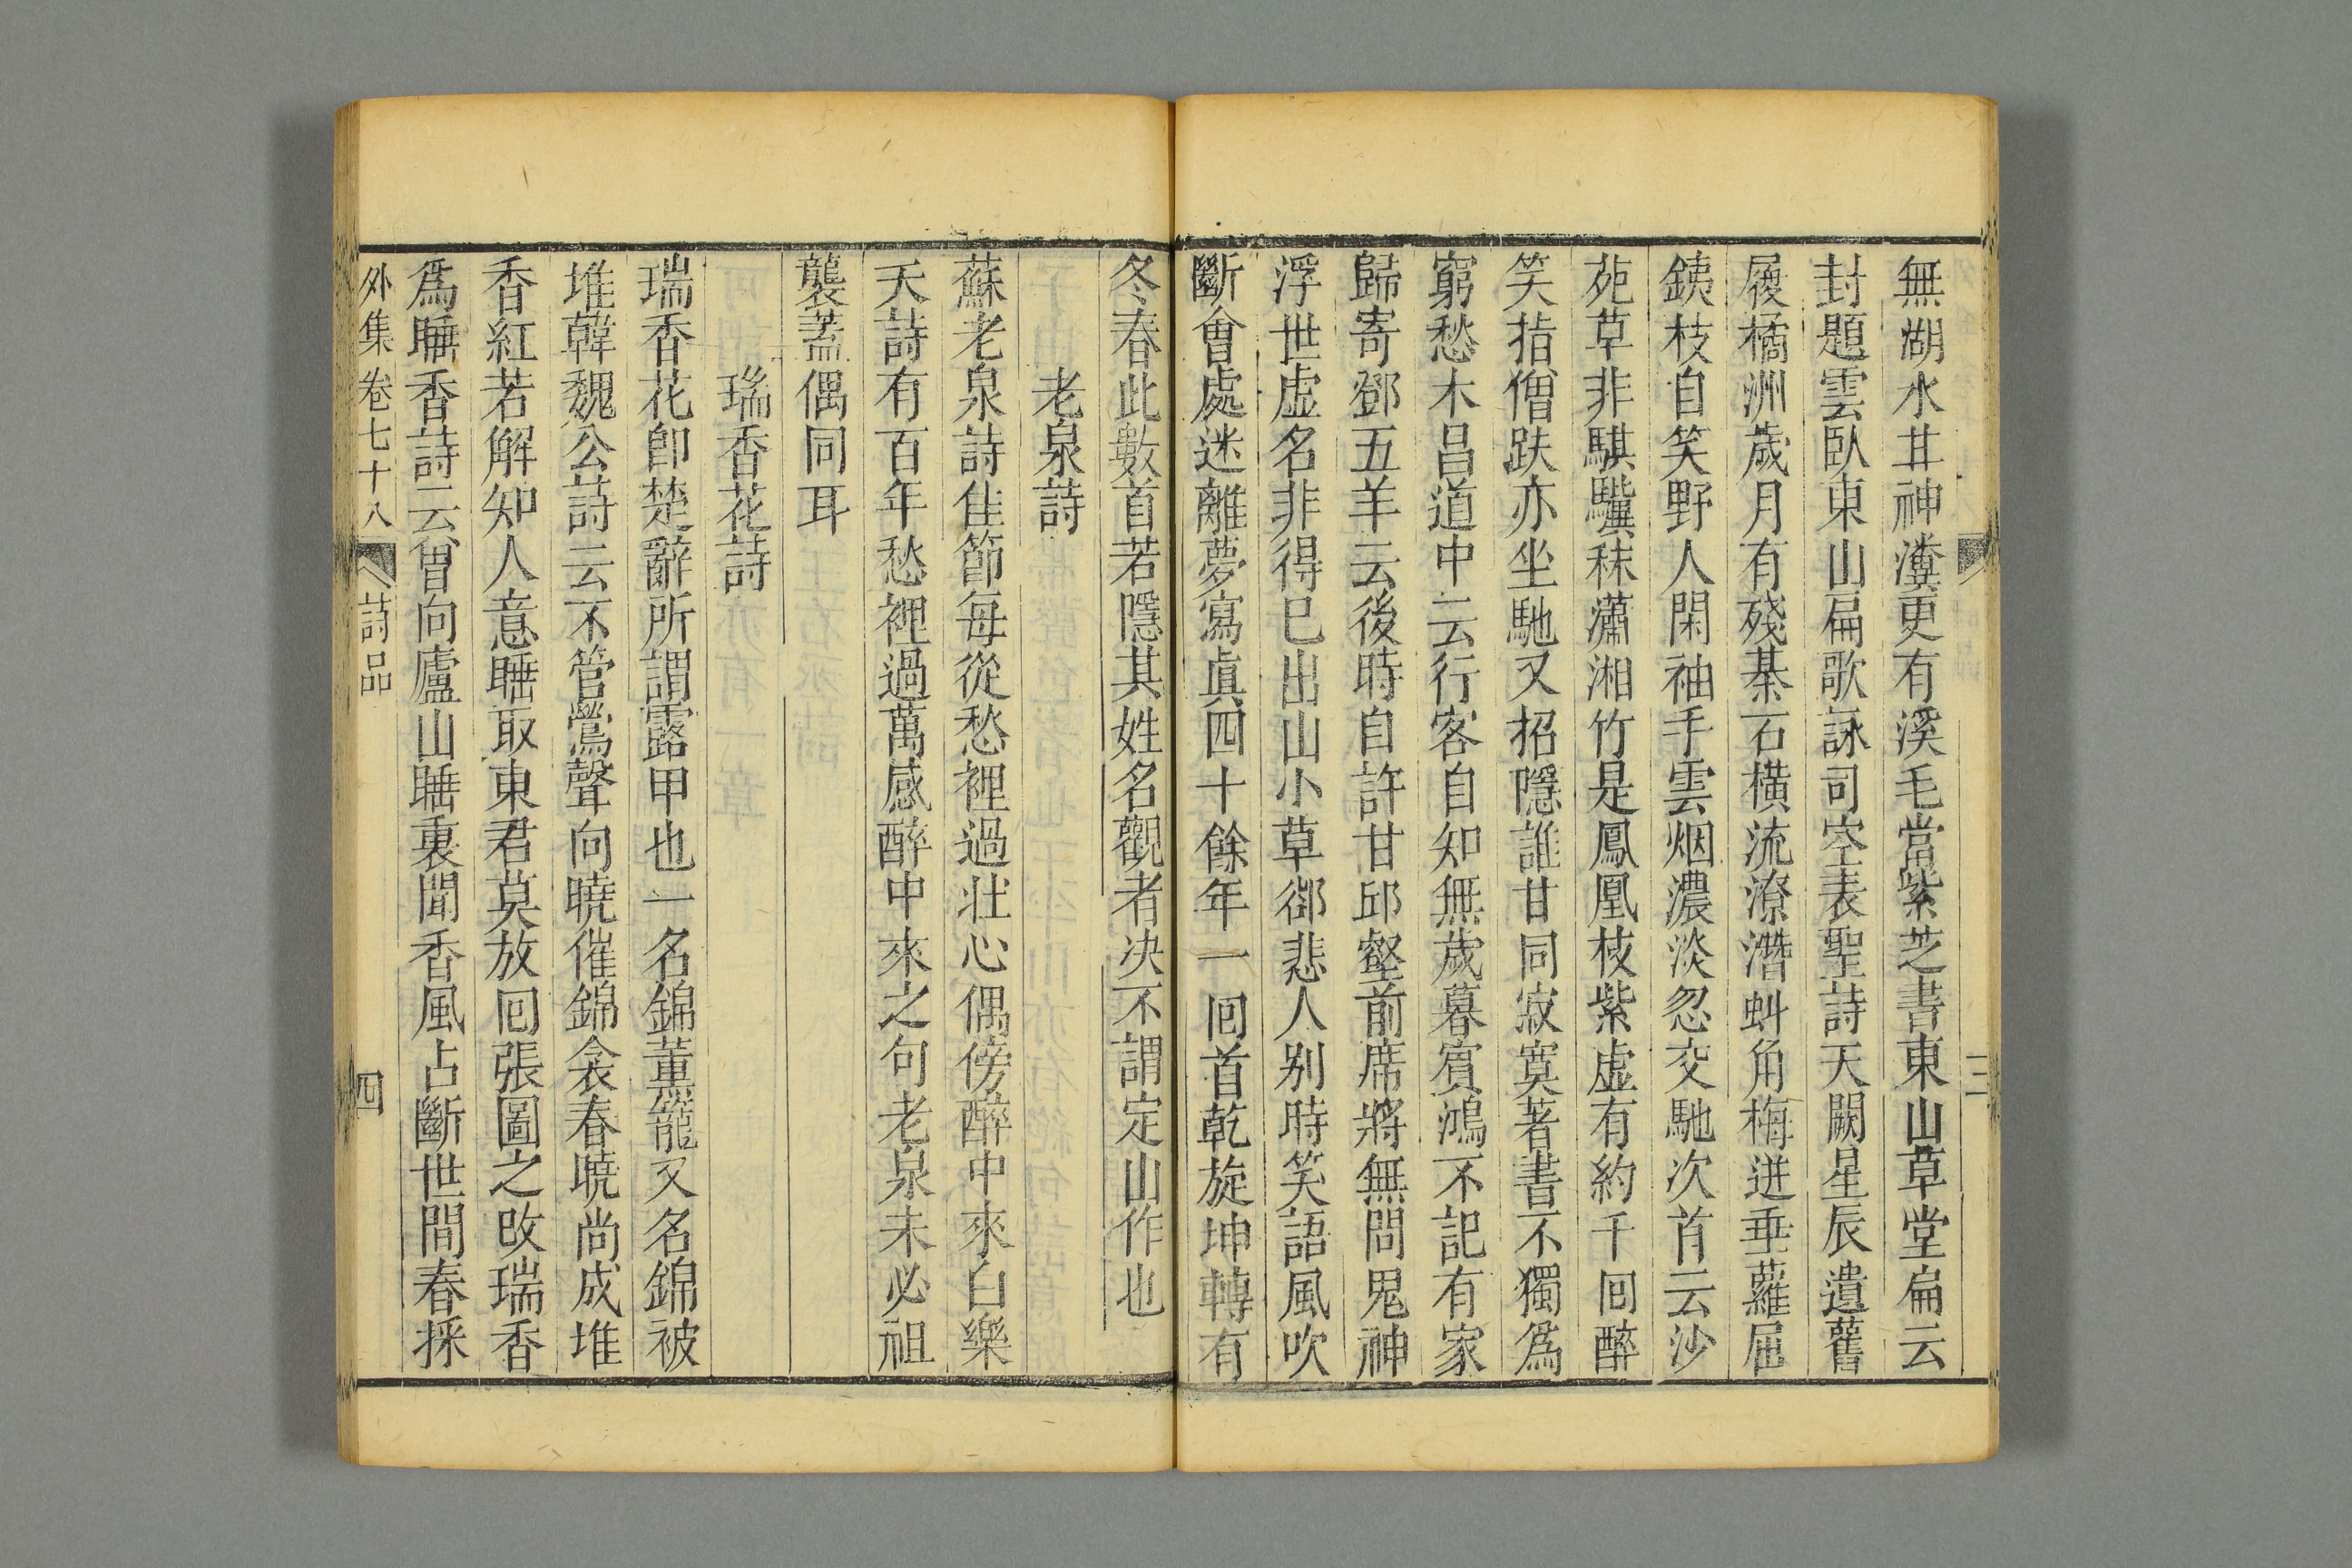 無湖水井神瀵更有溪毛當紫芝書東山草堂扁云
封題雲臥東山扁歌詠司空表聖詩天闕星辰遺舊
履橘洲歲月有殘棊石橫流潦潛蚪角梅迸垂蘿屈
銕枝自笑野人閑袖手雲烟濃淡忽交馳次首云沙
苑草非騏驥秣瀟湘竹是鳳凰枝紫虛有約千回醉
笑拈僧趺亦坐馳又招隱誰甘同寂寞著書不獨爲
窮愁木昌道中云行客自知無歲暮賓鴻不記有家
歸寄鄧五羊云後時自許甘邱壑前席將無問鬼神
浮世虛名非得已出山小草郤悲人别時笑語風吹
斷會處迷離夢寫眞四十餘年一回首乾旋坤轉有
冬春此數首若隱其姓名觀者决不謂定山作也
老泉詩
蘇老泉詩佳節每從愁裡過壯心偶傍醉中來白樂
天詩有百年愁裡過萬感醉中來之句老泉未必祖
襲蓋偶同耳
瑞香花詩
瑞香花卽楚辭所謂露甲也一名錦薰籠又名錦被
堆韓魏公詩云不管鶯聲向曉催錦衾春曉尚成堆
香紅若解知人意睡取東君莫放回張圖之改瑞香
爲睡香詩云曾向廬山睡裏聞香風占斷世間春採
外集卷七十八 詩品 四